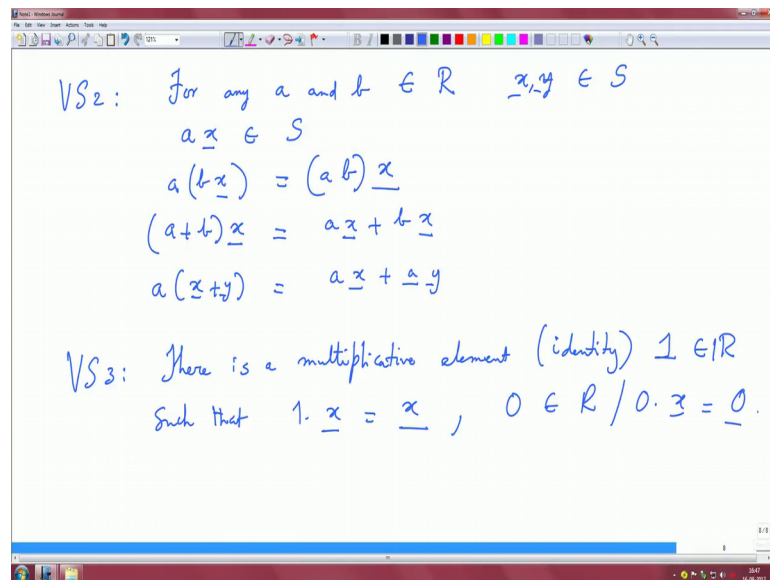 Note1 - Windows Journal
File Edit View Insert Actions Tools Help
121%
VS2: For any a and b ∈ R x, y ∈ S
a x ∈ S
a(b x) = (a b) x
(a+b) x = a x + b x
a(x+y) = a x + a y
VS3: There is a multiplicative element (identity) 1 ∈ IR
Such that 1. x = x , 0 ∈ R / 0. x = 0.
8/8
8
16:47